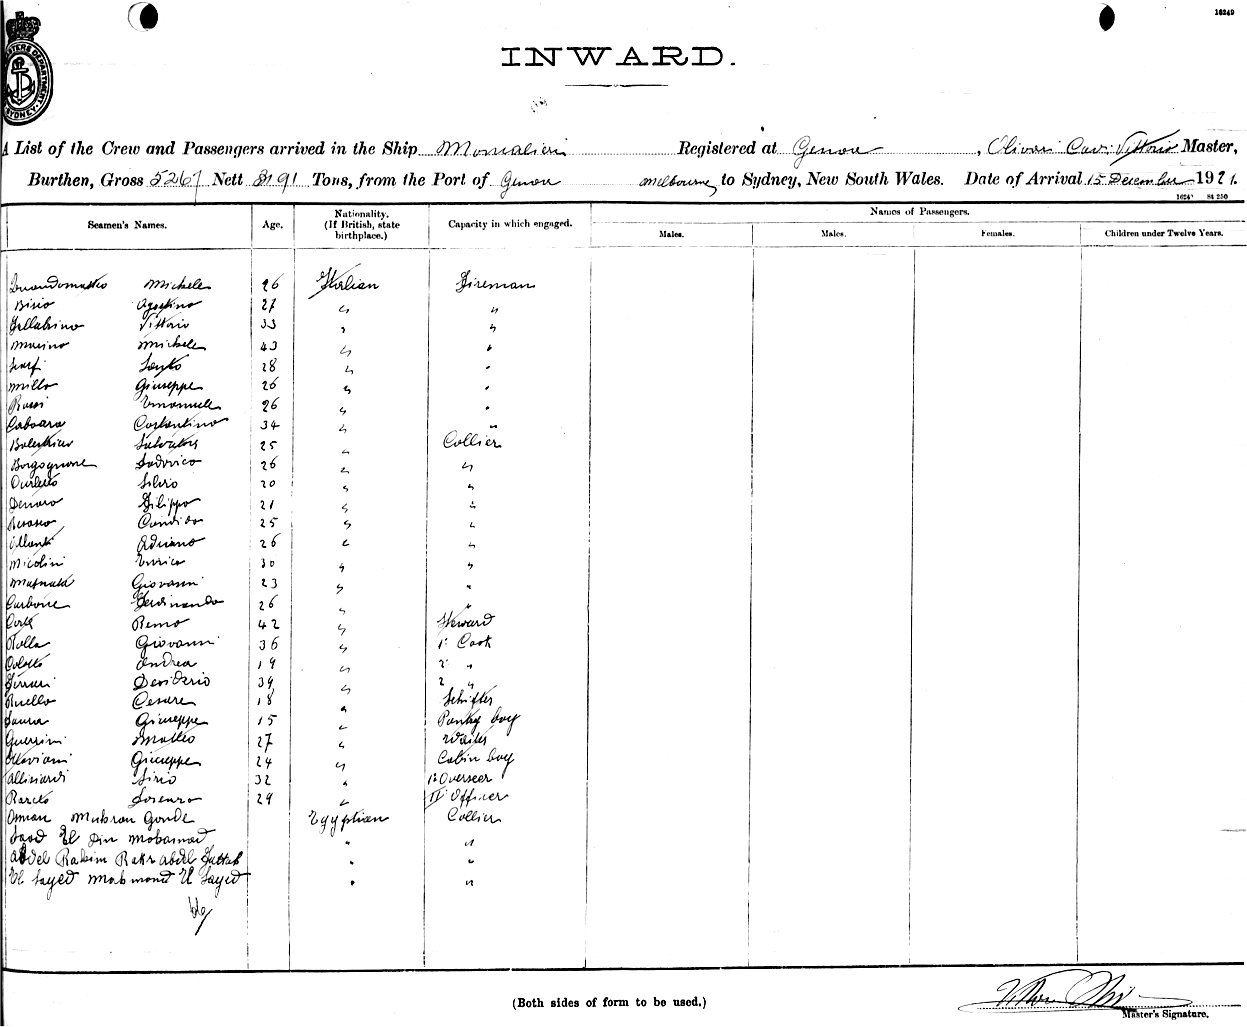 16249
INWARD.
A List of the Crew and Passengers arrived in the Ship Moncalieri Registered at Genova, Olivari Cav. Vittorio Master,
Burthen, Gross 5267 Nett 3191 Tons, from the Port of Genova Melbourne to Sydney, New South Wales. Date of Arrival 15 December 1921.
1624 St 250
Seamen's Names. Age. Nationality. (If British, state birthplace.) Capacity in which engaged. Names of Passengers.
Males. Males. Females. Children under Twelve Years.
Michele 26 Italian Fireman
Bisio Agostino 27 " "
Vittorio 33 " "
Marino Michele 43 " "
28 " "
Millo Giuseppe 26 " "
Rossi Emanuele 26 " "
Caboara Costantino 34 " "
Salvatore 25 " Collier
Borgognone Lodovico 26 " "
Silvio 20 " "
Denaro Filippo 21 " "
Candido 25 " "
Adriano 26 " "
Micolini Enrico 30 " "
Giovanni 23 " "
Carbone Ferdinando 26 " "
Remo 42 " Steward
Rolla Giovanni 36 " 1° Cook
Andrea 19 " 2° "
Ferrari Desiderio 39 " 2 "
Ruello Cesare 18 "
Laura Giuseppe 15 " Pantry boy
Guerrini Matteo 27 " Waiter
Ottaviani Giuseppe 24 " Cabin boy
Sirio 32 " 1° Overseer
Lorenzo 29 " II° Officer
Osman Mubrou Gouda Egyptian Collier
Saad El Din Mohamed " "
Abdel Rahim Bakr Abdel Fattah " "
El Sayed Mahmoud El Sayed " "
(Both sides of form to be used.)
Master's Signature.